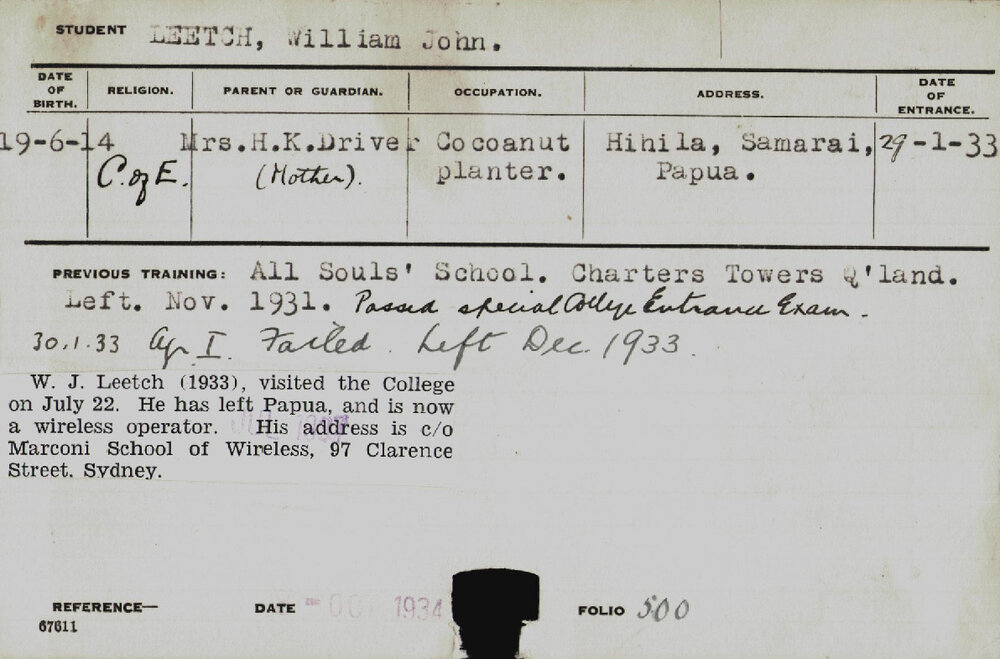 STUDENT LEETCH, William John.
DATE OF BIRTH. RELIGION. PARENT OR GUARDIAN. OCCUPATION. ADDRESS. DATE OF ENTRANCE.
19-6-14 Mrs.H.K.Driver Cocoanut Hihila, Samarai, 29-1-33
C. of E. (Mother). planter. Papua.
PREVIOUS TRAINING: All Souls' School. Charters Towers Q'land.
Left. Nov. 1931. Passed special College Entrance Exam.
30.1.33 Ag. I. Failed. Left Dec. 1933.
W. J. Leetch (1933), visited the College
on July 22. He has left Papua, and is now
a wireless operator. His address is c/o
Marconi School of Wireless, 97 Clarence
Street. Sydney.
REFERENCE— DATE - OCT 1934 FOLIO 500
67611